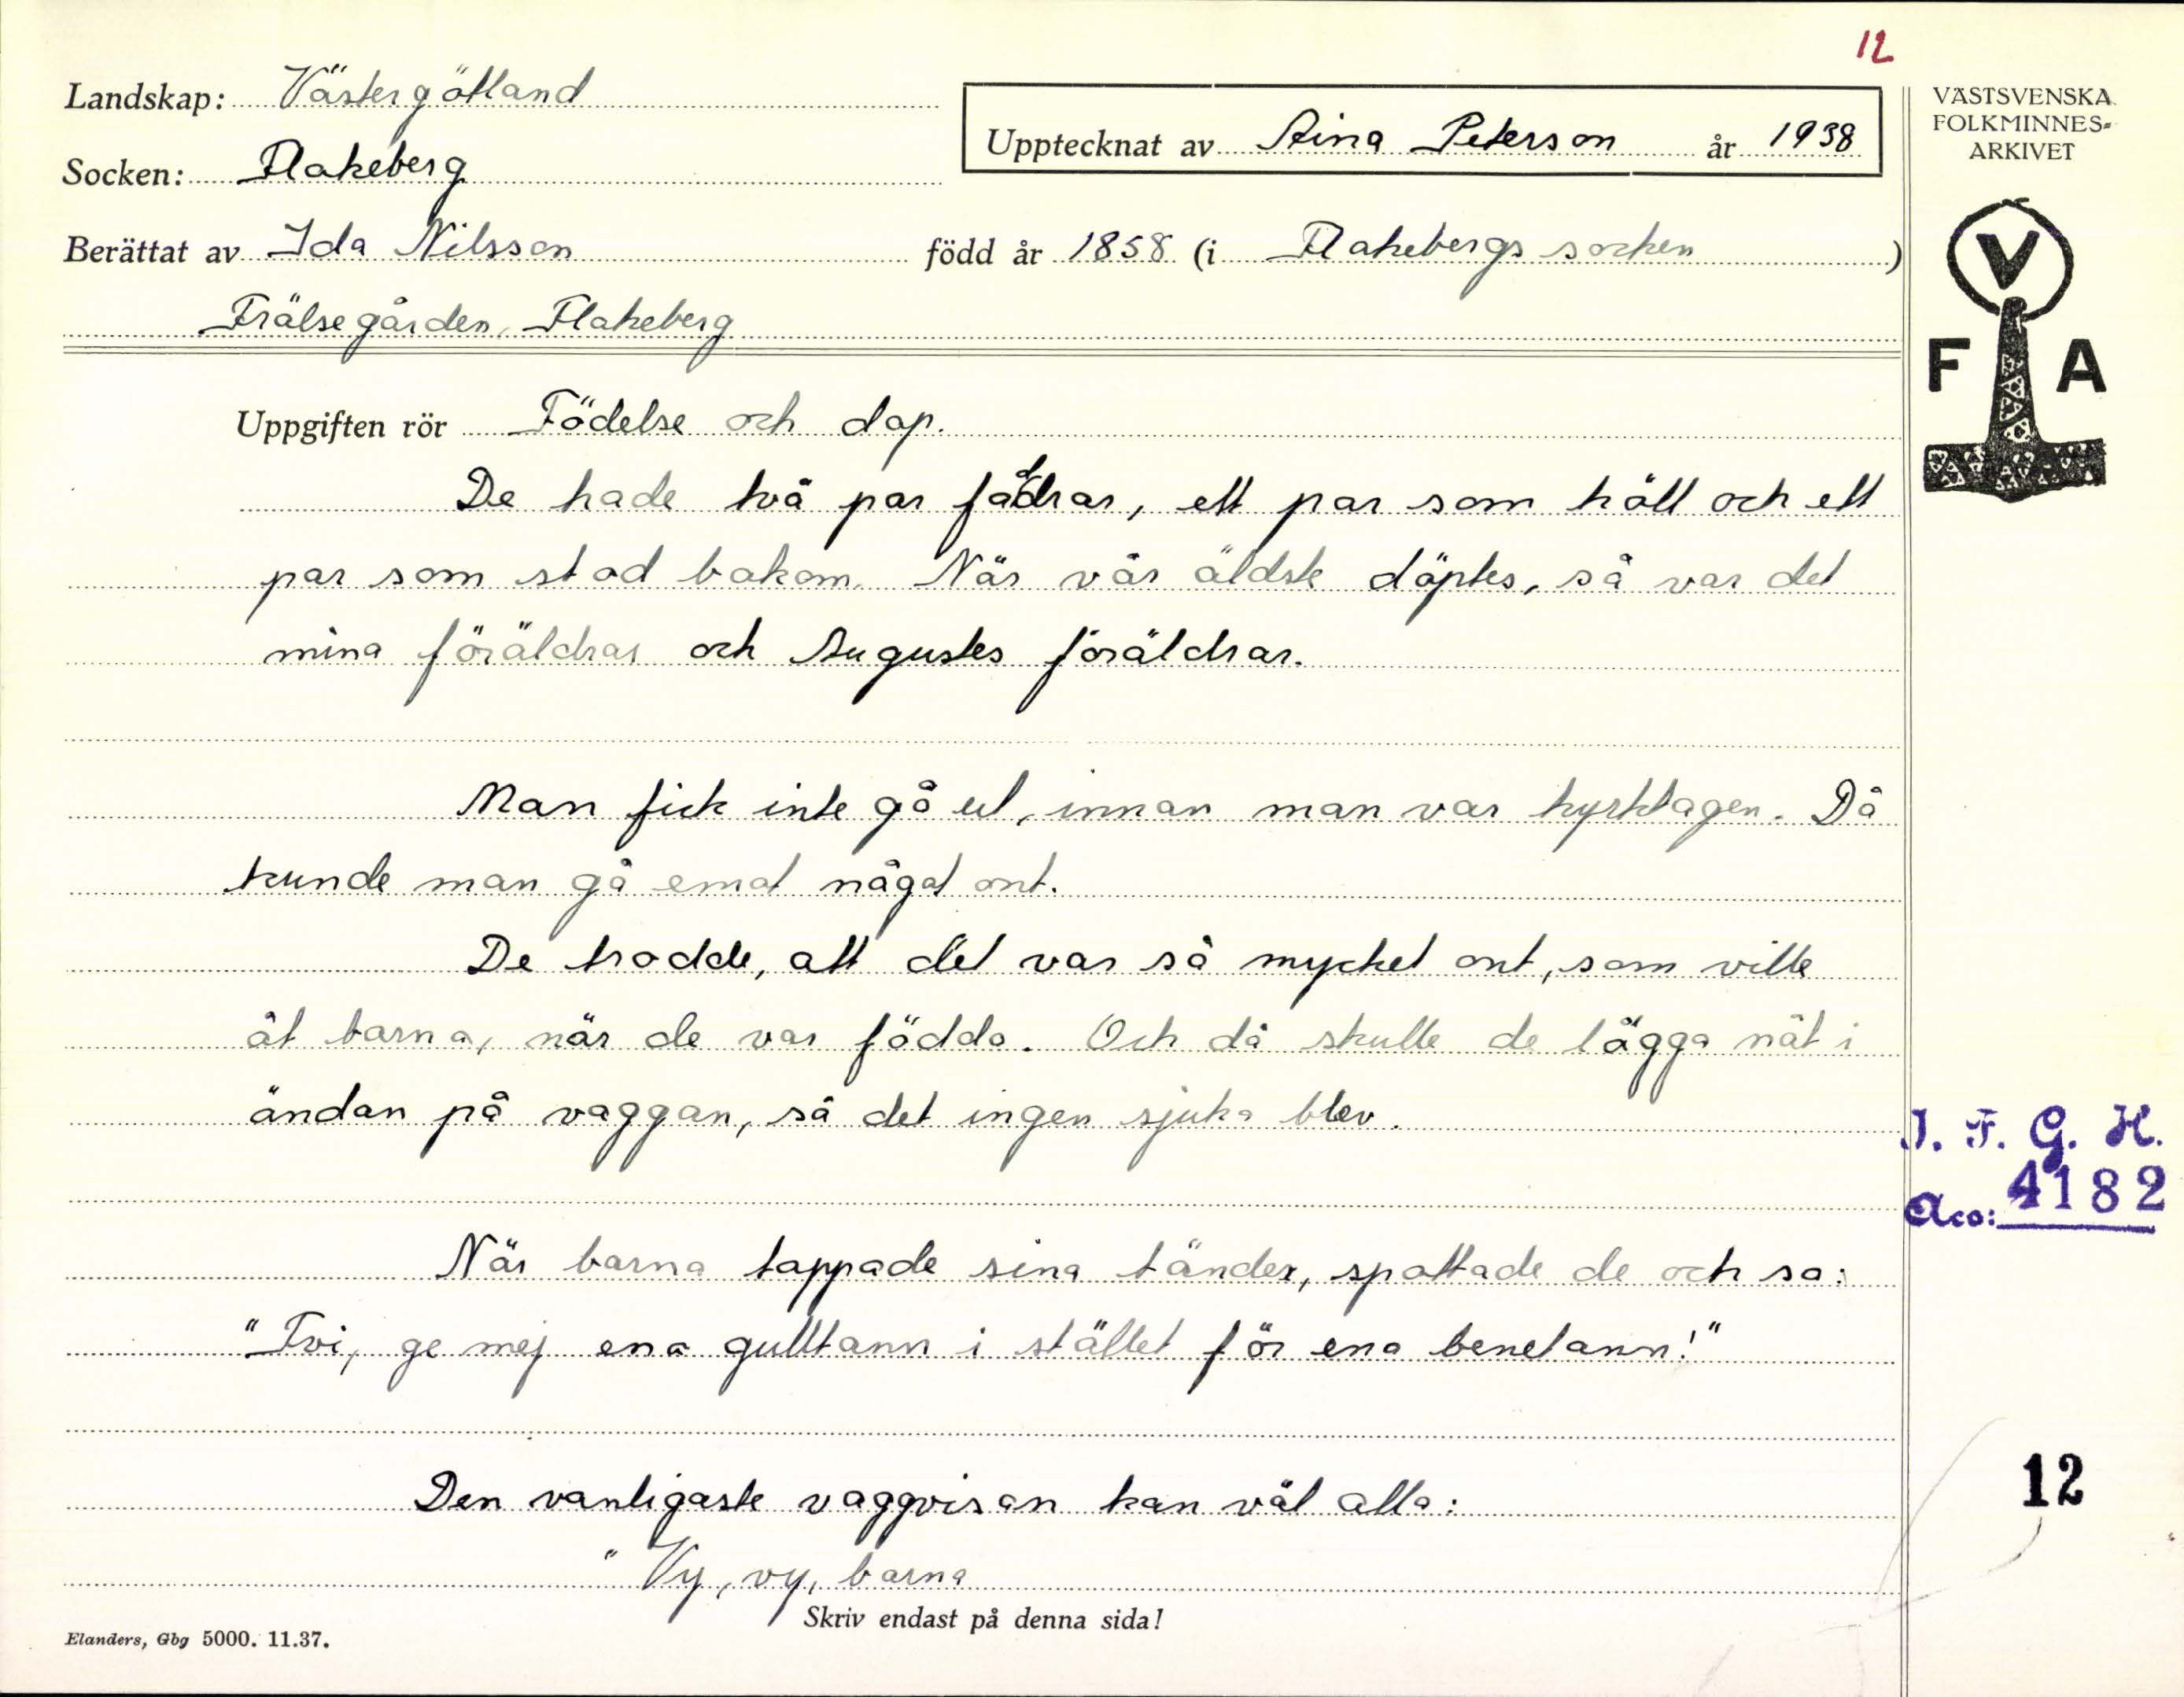 12
Landskap: Västergötland
Upptecknat av Aina Peterson år 1938
VÄSTSVENSKA
FOLKMINNES-
ARKIVET
Socken: Flakeberg
Berättat av Ida Nilsson född år 1858 (i Flakebergs socken)
Frälsegården, Flakeberg
V
F A
Uppgiften rör Födelse och dop.
De hade två par faddrar, ett par som höll och ett
par som stod bakom. När vår äldste döptes, så var det
mina föräldrar och Augustes föräldrar.
Man fick inte gå ut, innan man var kyrktagen. Då
kunde man gå emot något ont.
De trodde, att det var så mycket ont, som ville
åt barna, när de var födda. Och då skulle de lägga nåt i
ändan på vaggan, så det ingen sjuka blev.
I. F. G. H.
Acc: 4182
När barna tappade sina tänder, spottade de och sa:
"Tvi, ge mej ena gulltann i stället för ena benetann!"
Den vanligaste vaggvisan kan väl alla:
12
"Vy, vy, barna
Skriv endast på denna sida!
Elanders, Gbg 5000. 11.37.